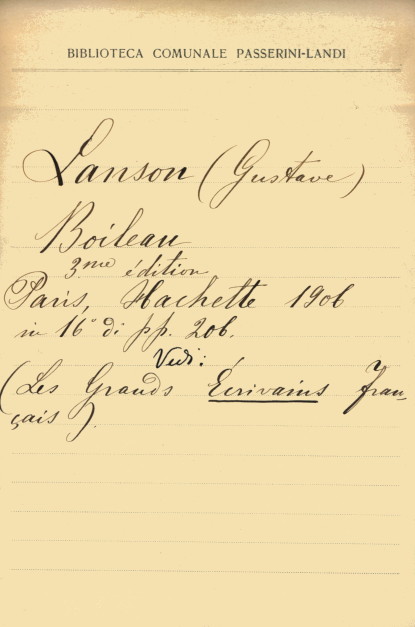 BIBLIOTECA COMUNALE PASSERINI-LANDI
Lanson (Gustave)
Boileau
3me édition
Paris, Hachette 1906
in 16° di pp. 206.
Vedi:
(Les Grands Écrivains fran-
çais).